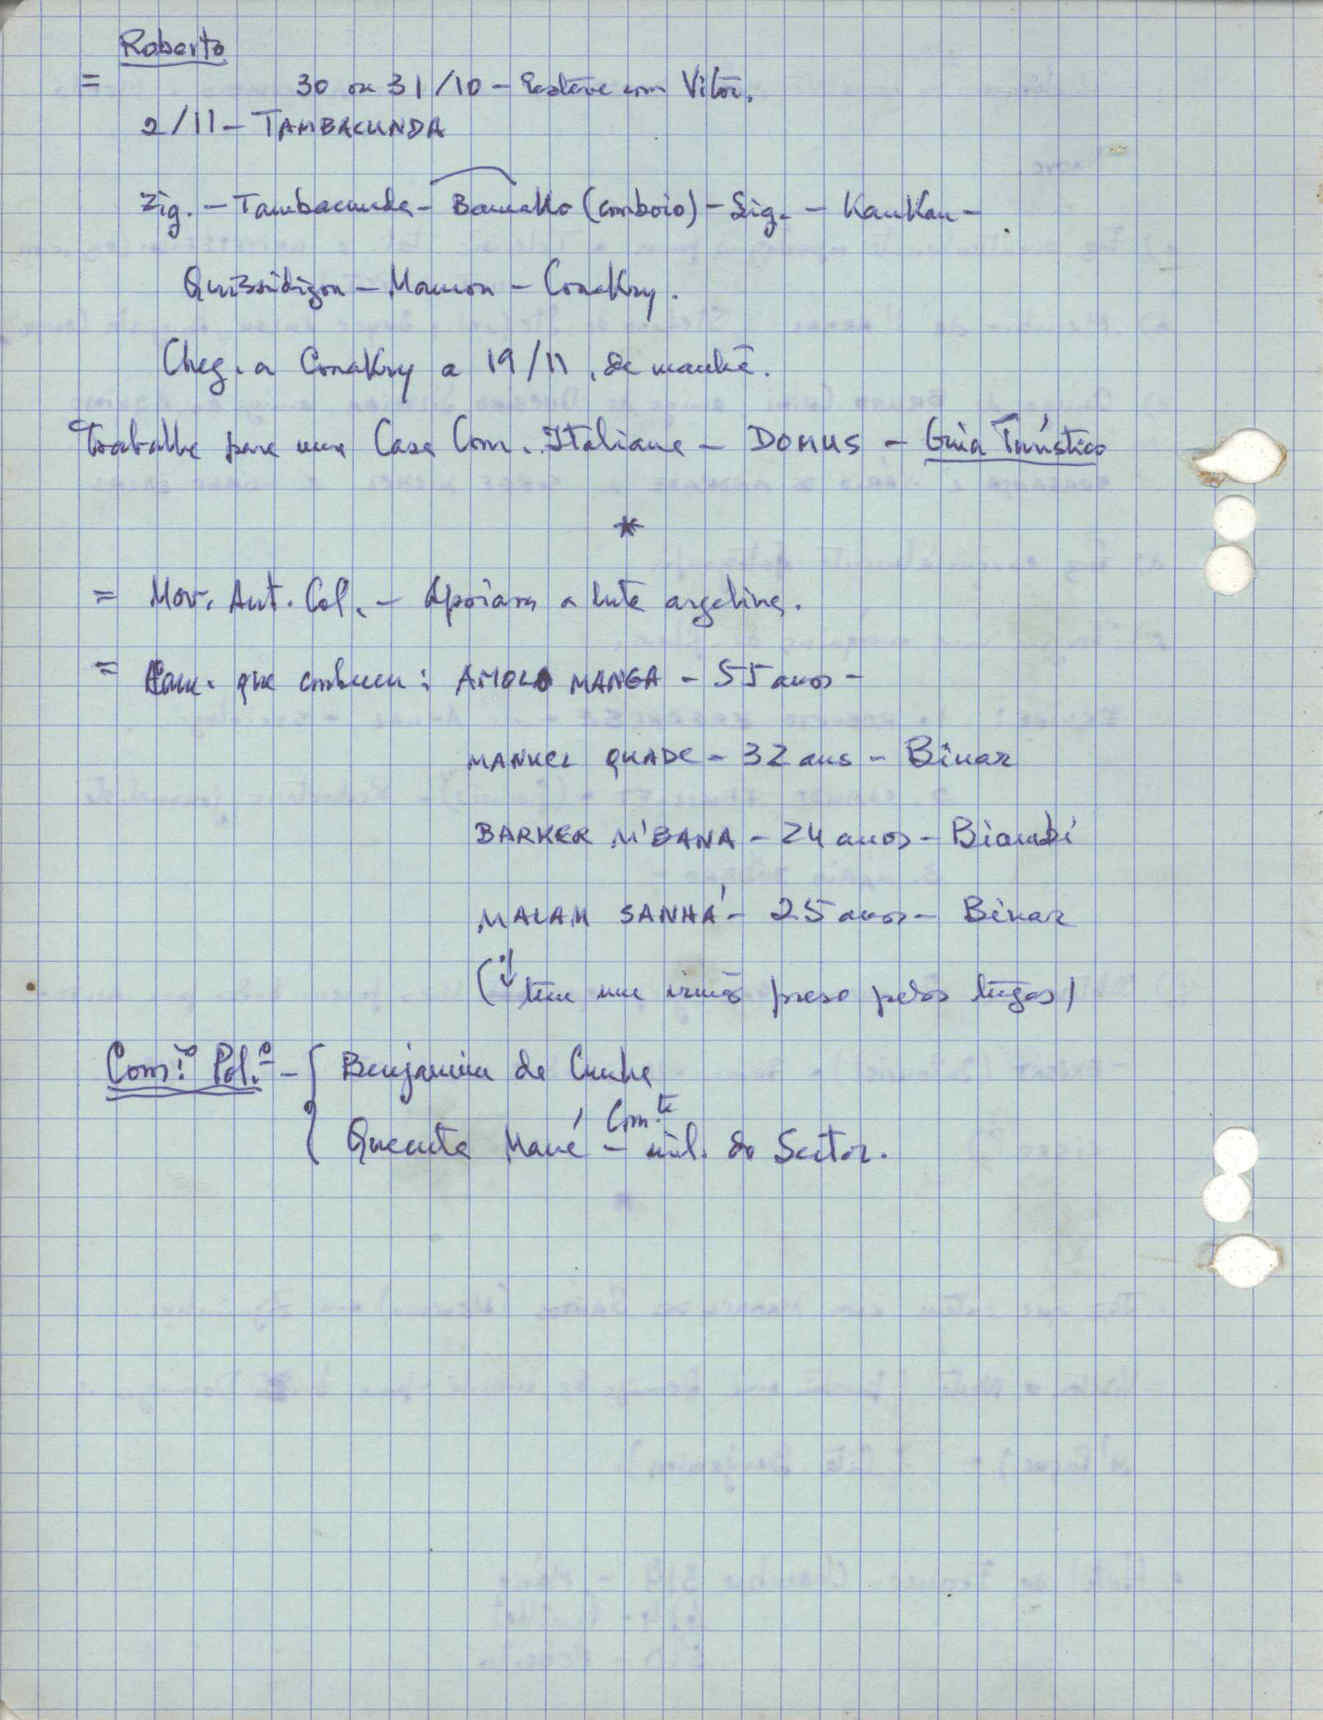 Roberto
= 30 ou 31/10 - Esteve com Vitor.
2/11 - TAMBACUNDA
Zig. - Tambacunda - Bamako (comboio) - Sig. - KanKan -
Quissidigou - Mamou - ConaKry.
Cheg. a ConaKry a 19/11, de manhã.
Trabalha para uma Casa Com. Italiana - DOMUS - Guia Turístico
*
= Mov. Ant. Col. - Apoiam a luta argelina.
= que conheceu: MANGA - 55 anos -
MANUEL QUADE - 32 anos - Binar
BARKER M'BANA - 24 anos - Biambi
MALAM SANHÁ - 25 anos - Binar
(↓ tem um irmão preso pelos tugas)
Com.º Pol.º - { Benjamim da Cunha
Quecuta Mané - Com.te mil. do Sector.